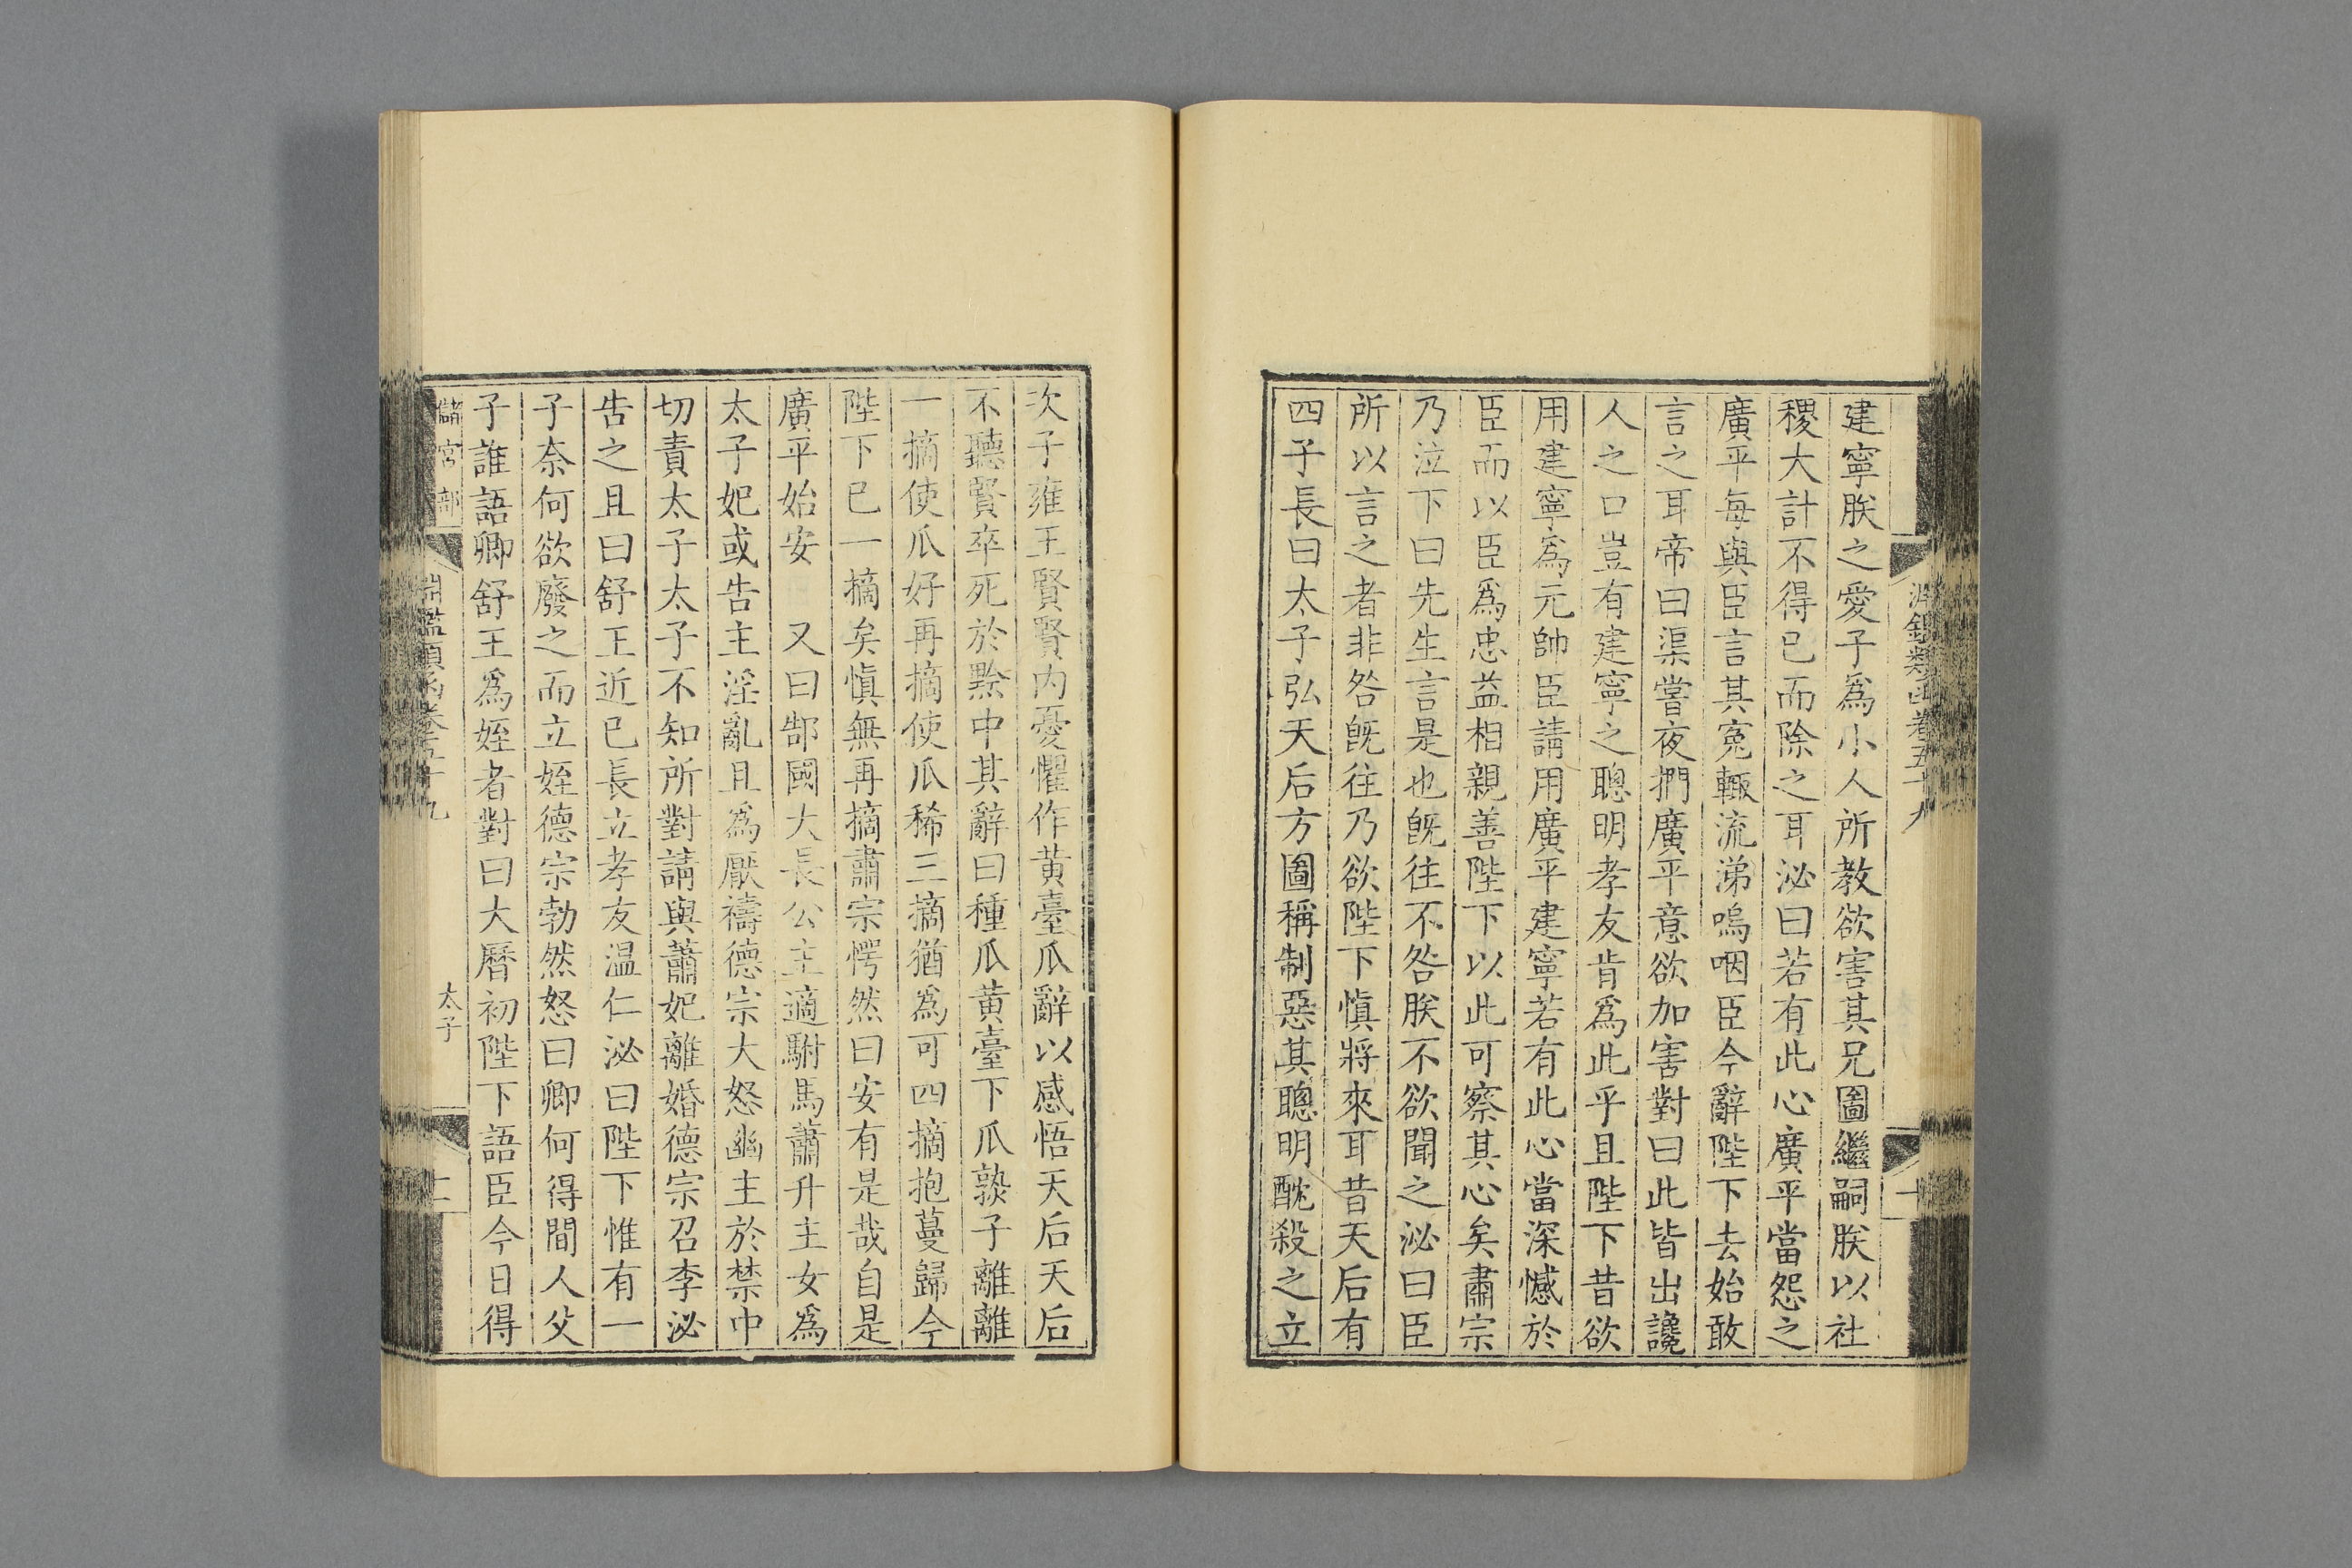 淵鑑類函卷五十九
十
建寧朕之愛子爲小人所教欲害其兄圖繼嗣朕以社
稷大計不得已而除之耳泌曰若有此心廣平當怨之
廣平每與臣言其寃輙流涕嗚咽臣今辭陛下去始敢
言之耳帝曰渠嘗夜捫廣平意欲加害對曰此皆出讒
人之口豈有建寧之聰明孝友肯爲此乎且陛下昔欲
用建寧爲元帥臣請用廣平建寧若有此心當深憾於
臣而以臣爲忠益相親善陛下以此可察其心矣肅宗
乃泣下曰先生言是也旣往不咎朕不欲聞之泌曰臣
所以言之者非咎旣往乃欲陛下慎將來耳昔天后有
四子長曰太子弘天后方圖稱制惡其聰明酖殺之立
次子雍王賢賢內憂懼作黄臺瓜辭以感悟天后天后
不聽賢卒死於黔中其辭曰種瓜黄臺下瓜熟子離離
一摘使瓜好再摘使瓜稀三摘猶爲可四摘抱蔓歸今
陛下已一摘矣慎無再摘肅宗愕然曰安有是哉自是
廣平始安　又曰郜國大長公主適駙馬蕭升主女爲
太子妃或告主淫亂且爲厭禱德宗大怒幽主於禁中
切責太子太子不知所對請與蕭妃離婚德宗召李泌
告之且曰舒王近已長立孝友温仁泌曰陛下惟有一
子奈何欲廢之而立姪德宗勃然怒曰卿何得間人父
子誰語卿舒王爲姪者對曰大曆初陛下語臣今日得
儲宮部
淵鑑類函卷五十九
太子